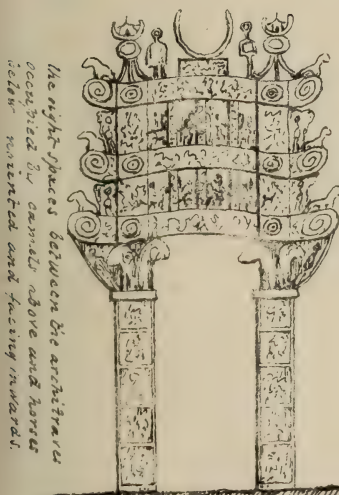 The eight spaces between the architraves
occupied by camels above and horses
below mounted and facing inwards.